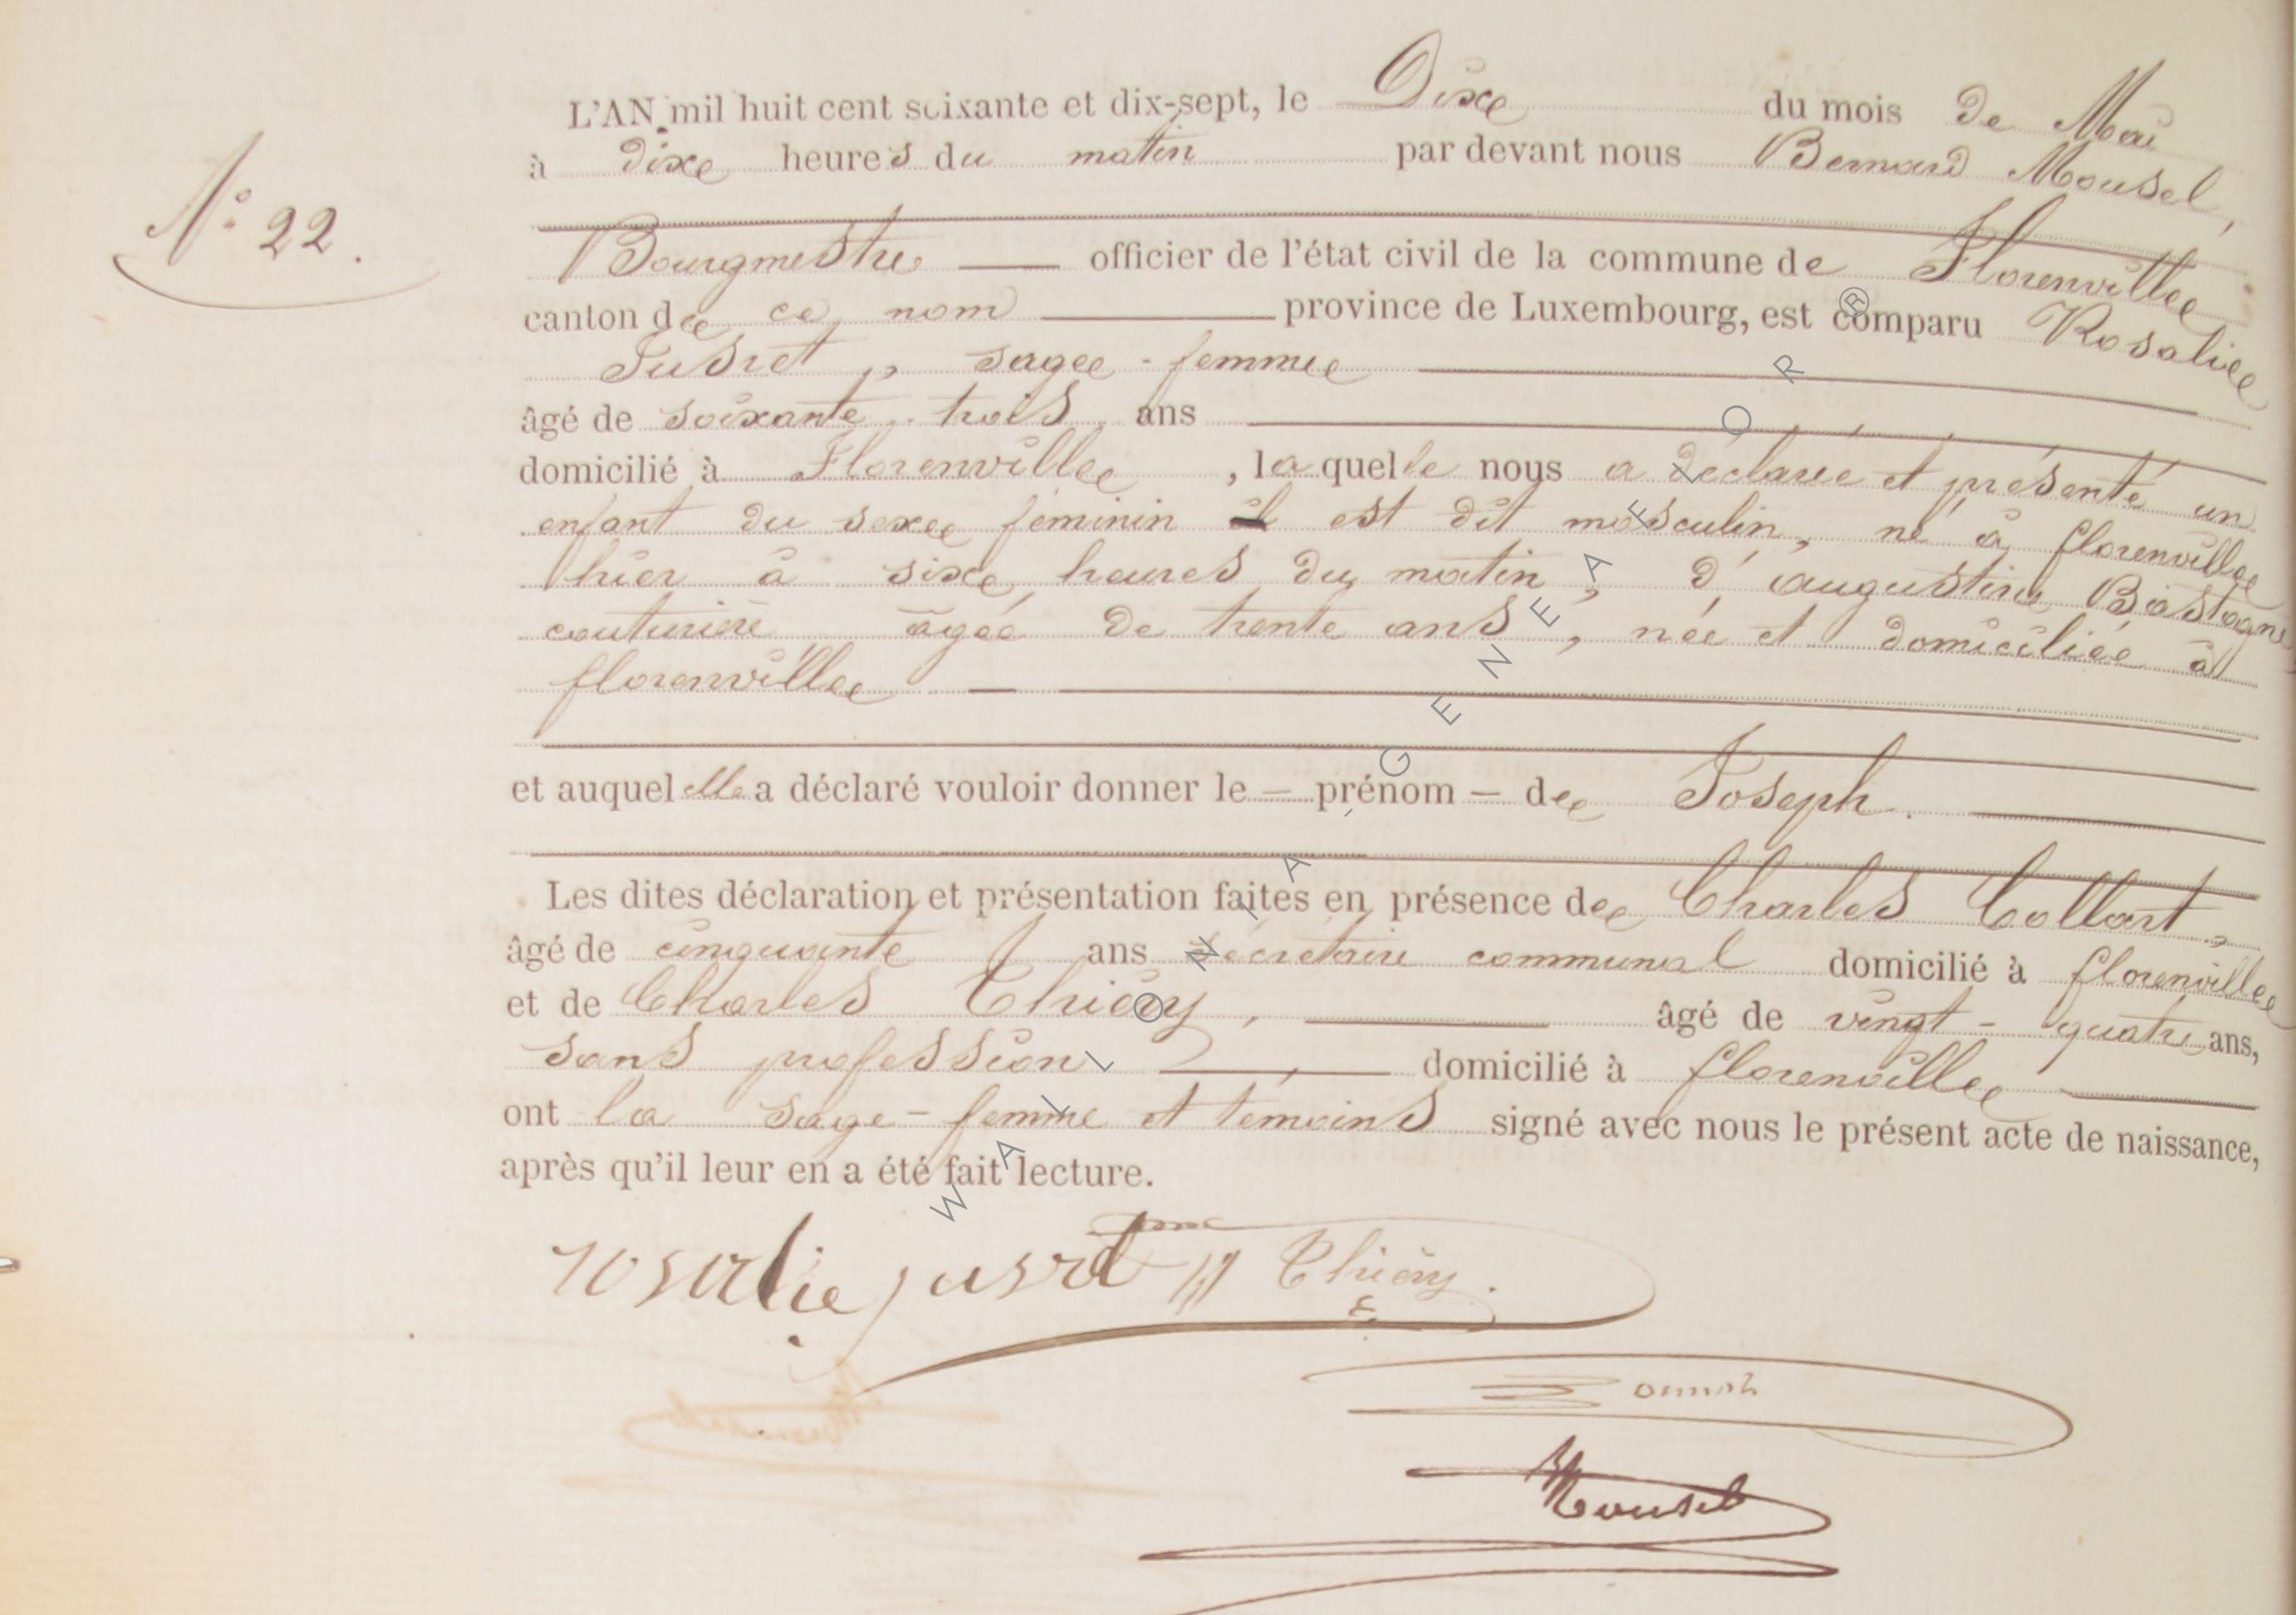 N° 22.
L'AN mil huit cent soixante et dix-sept, le Dix du mois de Mai
à dix heures du matin par devant nous Bernard Mousel,
Bourgmestre officier de l'état civil de la commune de Florenville
canton de ce nom province de Luxembourg, est comparu Rosalie
Jusret, sage-femme
âgé de soixante-trois ans
domicilié à Florenville, laquelle nous a déclaré et présenté un
enfant du sexe féminin il est dit masculin, né à florenville
hier à six heures du matin, d'augustine Bastogne
couturière âgée de trente ans, née et domiciliée à
florenville
et auquel elle a déclaré vouloir donner le prénom de Joseph.
Les dites déclaration et présentation faites en présence de Charles Collart,
âgé de cinquante ans secrétaire communal domicilié à florenville
et de Charles Thiéry, âgé de vingt-quatre ans,
sans profession domicilié à florenville
ont la sage-femme et témoins signé avec nous le présent acte de naissance,
après qu'il leur en a été fait lecture.
rosalie jusret Thiéry.
Mousel
WALLONIA - GENEAFLOR ®